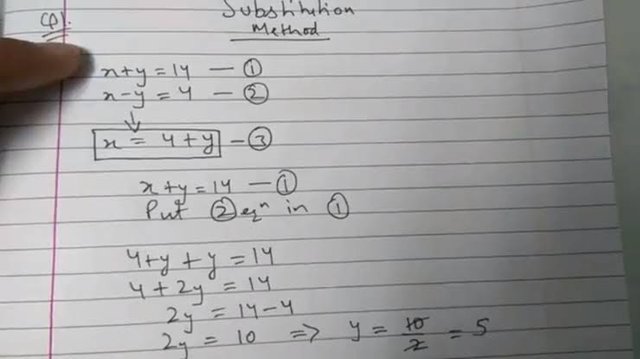 Q1.
Substitution
Method
x+y = 14 — ①
x-y = 4 — ②
↓
x = 4+y — ③
x+y = 14 — ①
Put ② eqⁿ in ①
4+y+y = 14
4+2y = 14
2y = 14-4
2y = 10 ⇒ y = 10/2 = 5